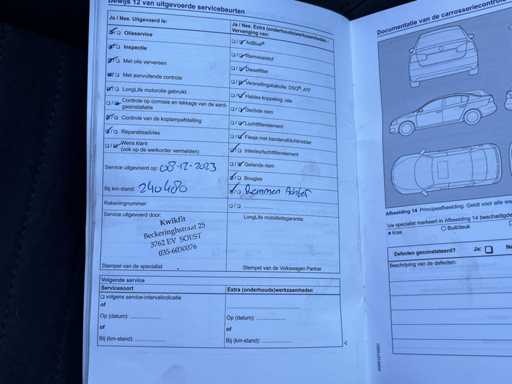 Bewijs 12 van uitgevoerde servicebeurten
Ja / Nee Uitgevoerd is:
Olieservice
Inspectie
Met olie verversen
Met aanvullende controle
LongLife motorolie gebruikt
Controle op corrosie en lekkage van de aard-
gasinstallatie
Controle van de koplampafstelling
Reparatieadvies
Wens klant
(ook op de werkorder vermelden)
Service uitgevoerd op: 08-12-2023
Bij km-stand: 240480
Rekeningnummer:
Service uitgevoerd door:
Kwikfit
Beckeringhstraat 25
3762 EV SOEST
035-6030076
Stempel van de specialist
Ja / Nee Extra (onderhouds)werkzaamheden:
Vervanging van:
AdBlue®
Remvloeistof
Dieselfilter
Versnellingsbakolie: DSG®, ATF
Haldex koppeling: olie
Getande riem
Luchtfilterelement
Flesje met bandendichtmiddel
Interieurluchtfilterelement
Getande riem
Bougies
Remmen Achter
LongLife mobiliteitsgarantie:
Stempel van de Volkswagen Partner
Volgende service
Servicesoort
Extra (onderhouds)werkzaamheden
volgens service-intervalindicatie
of
Op (datum):
Op (datum):
of
of
Bij (km-stand):
Bij (km-stand):
Documentatie van de carrosseriecontrole
Afbeelding 14 Principeafbeelding: Geldt voor alle
Uw specialist markeert in Afbeelding 14 beschadigde
Kras
Buil/deuk
Defecten geconstateerd?
Ja:
Beschrijving van de defecten: